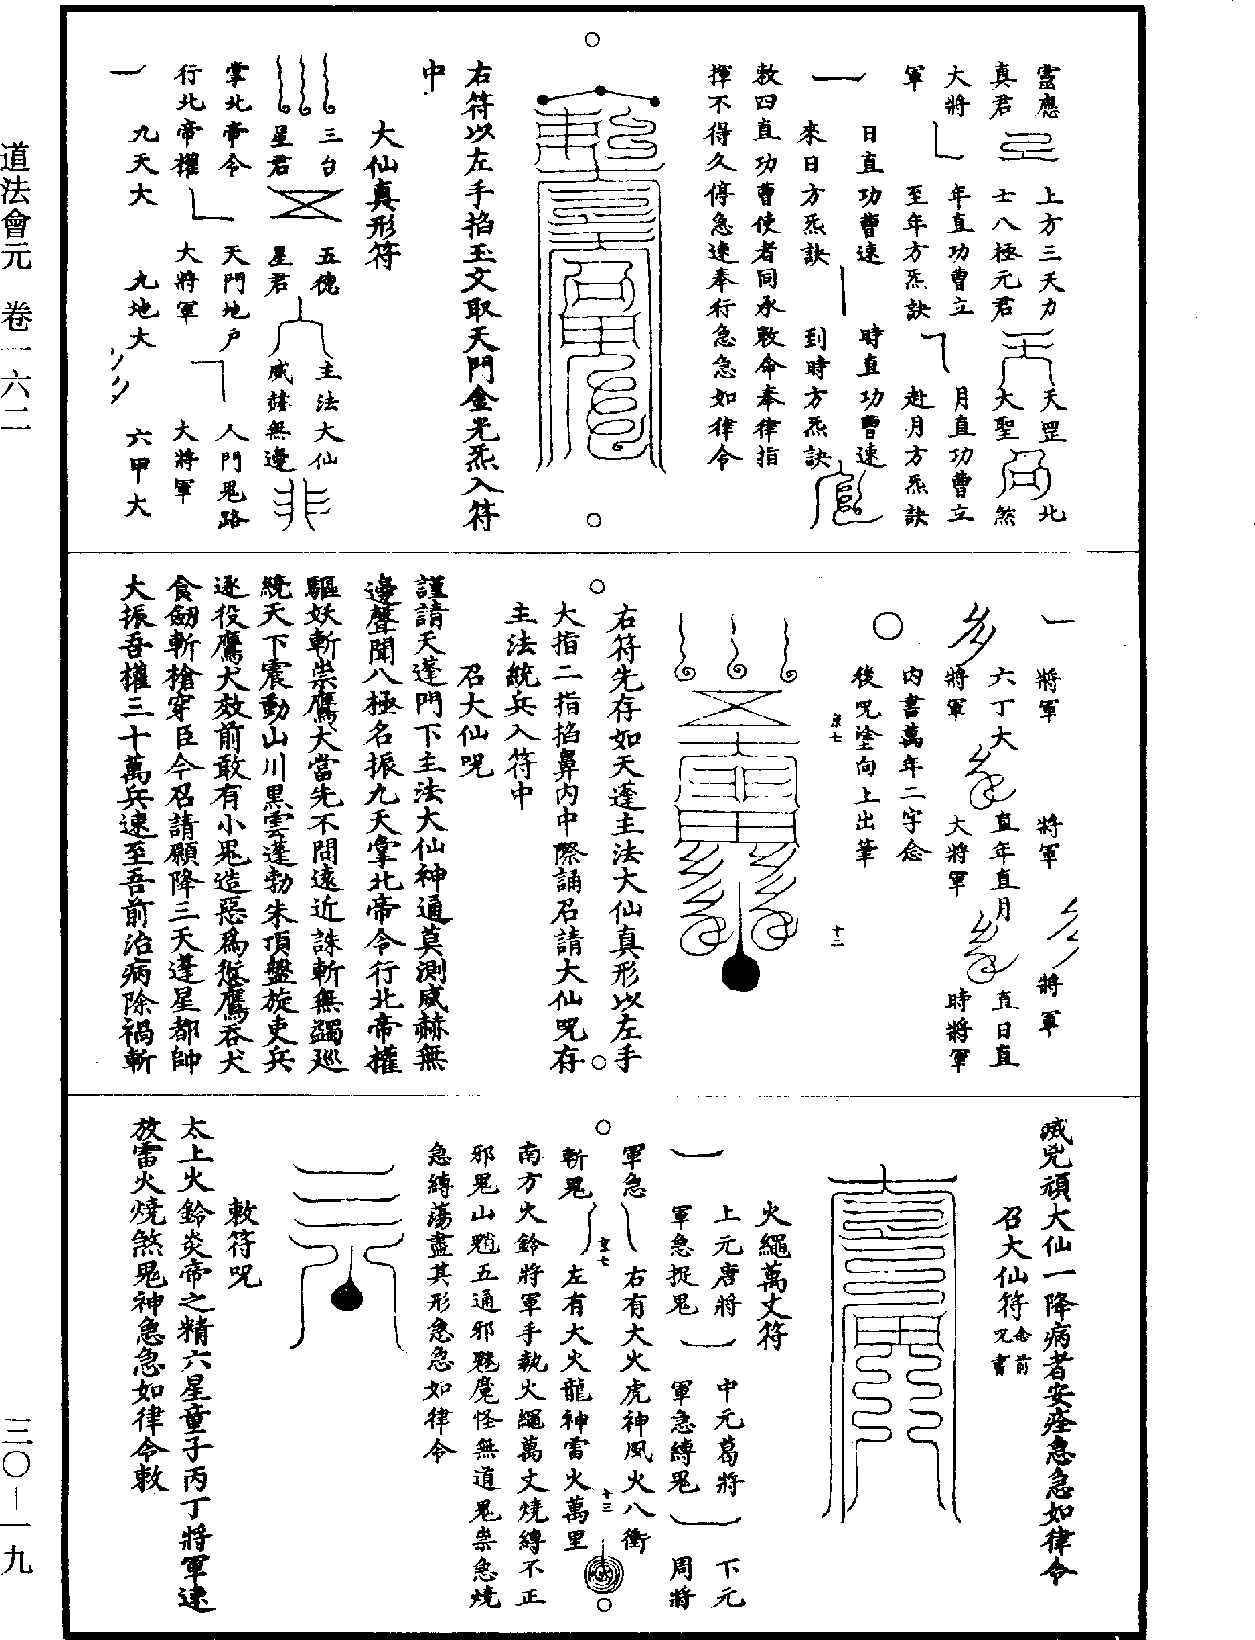 道法會元 卷一六二
三〇—一九
靈應 上方三天力 天罡 北
真君 士八極元君 大聖 煞
大將 年直功曹立 月直功曹立
軍 至年方炁訣 赴月方炁訣
日直功曹速 時直功曹速
來日方炁訣 到時方炁訣
敕四直功曹使者同承敕命奉律指
揮不得久停急速奉行急急如律令
右符以左手掐玉文取天門金光炁入符
中
大仙真形符
三台 五德 主法大仙
星君 星君 威赫無邊
掌北帝令 天門地戶 人門鬼路
行北帝權 大將軍 大將軍
九天大 九地大 六甲大
將軍 將軍 將軍
六丁大 直年直月 直日直
將軍 大將軍 時將軍
內書萬年二字念
後咒塗向上出筆
京七 十二
右符先存如天蓬主法大仙真形以左手
大指二指掐鼻內中際誦召請大仙咒存
主法統兵入符中
召大仙咒
謹請天蓬門下主法大仙神通莫測威赫無
邊聲聞八極名振九天掌北帝令行北帝權
驅妖斬祟鷹犬當先不問遠近誅斬無蠲巡
統天下震動山川黑雲蓬勃朱頂盤旋吏兵
逐役鷹犬效前敢有小鬼造惡為愆鷹吞犬
食劒斬槍穿臣今召請願降三天蓬星都帥
大振吾權三十萬兵速至吾前治病除禍斬
滅兇頑大仙一降病者安痊急急如律令
召大仙符 念前咒書
火繩萬丈符
上元唐將 中元葛將 下元
軍急捉鬼 軍急縛鬼 周將
軍急 右有大火虎神風火八衝
斬鬼 左有大火龍神雷火萬里
京七 十三
南方火鈴將軍手執火繩萬丈燒縛不正
邪鬼山魈五通邪魅魔怪無道鬼祟急燒
急縛蕩盡其形急急如律令
敕符咒
太上火鈴炎帝之精六星童子丙丁將軍速
放雷火燒煞鬼神急急如律令敕